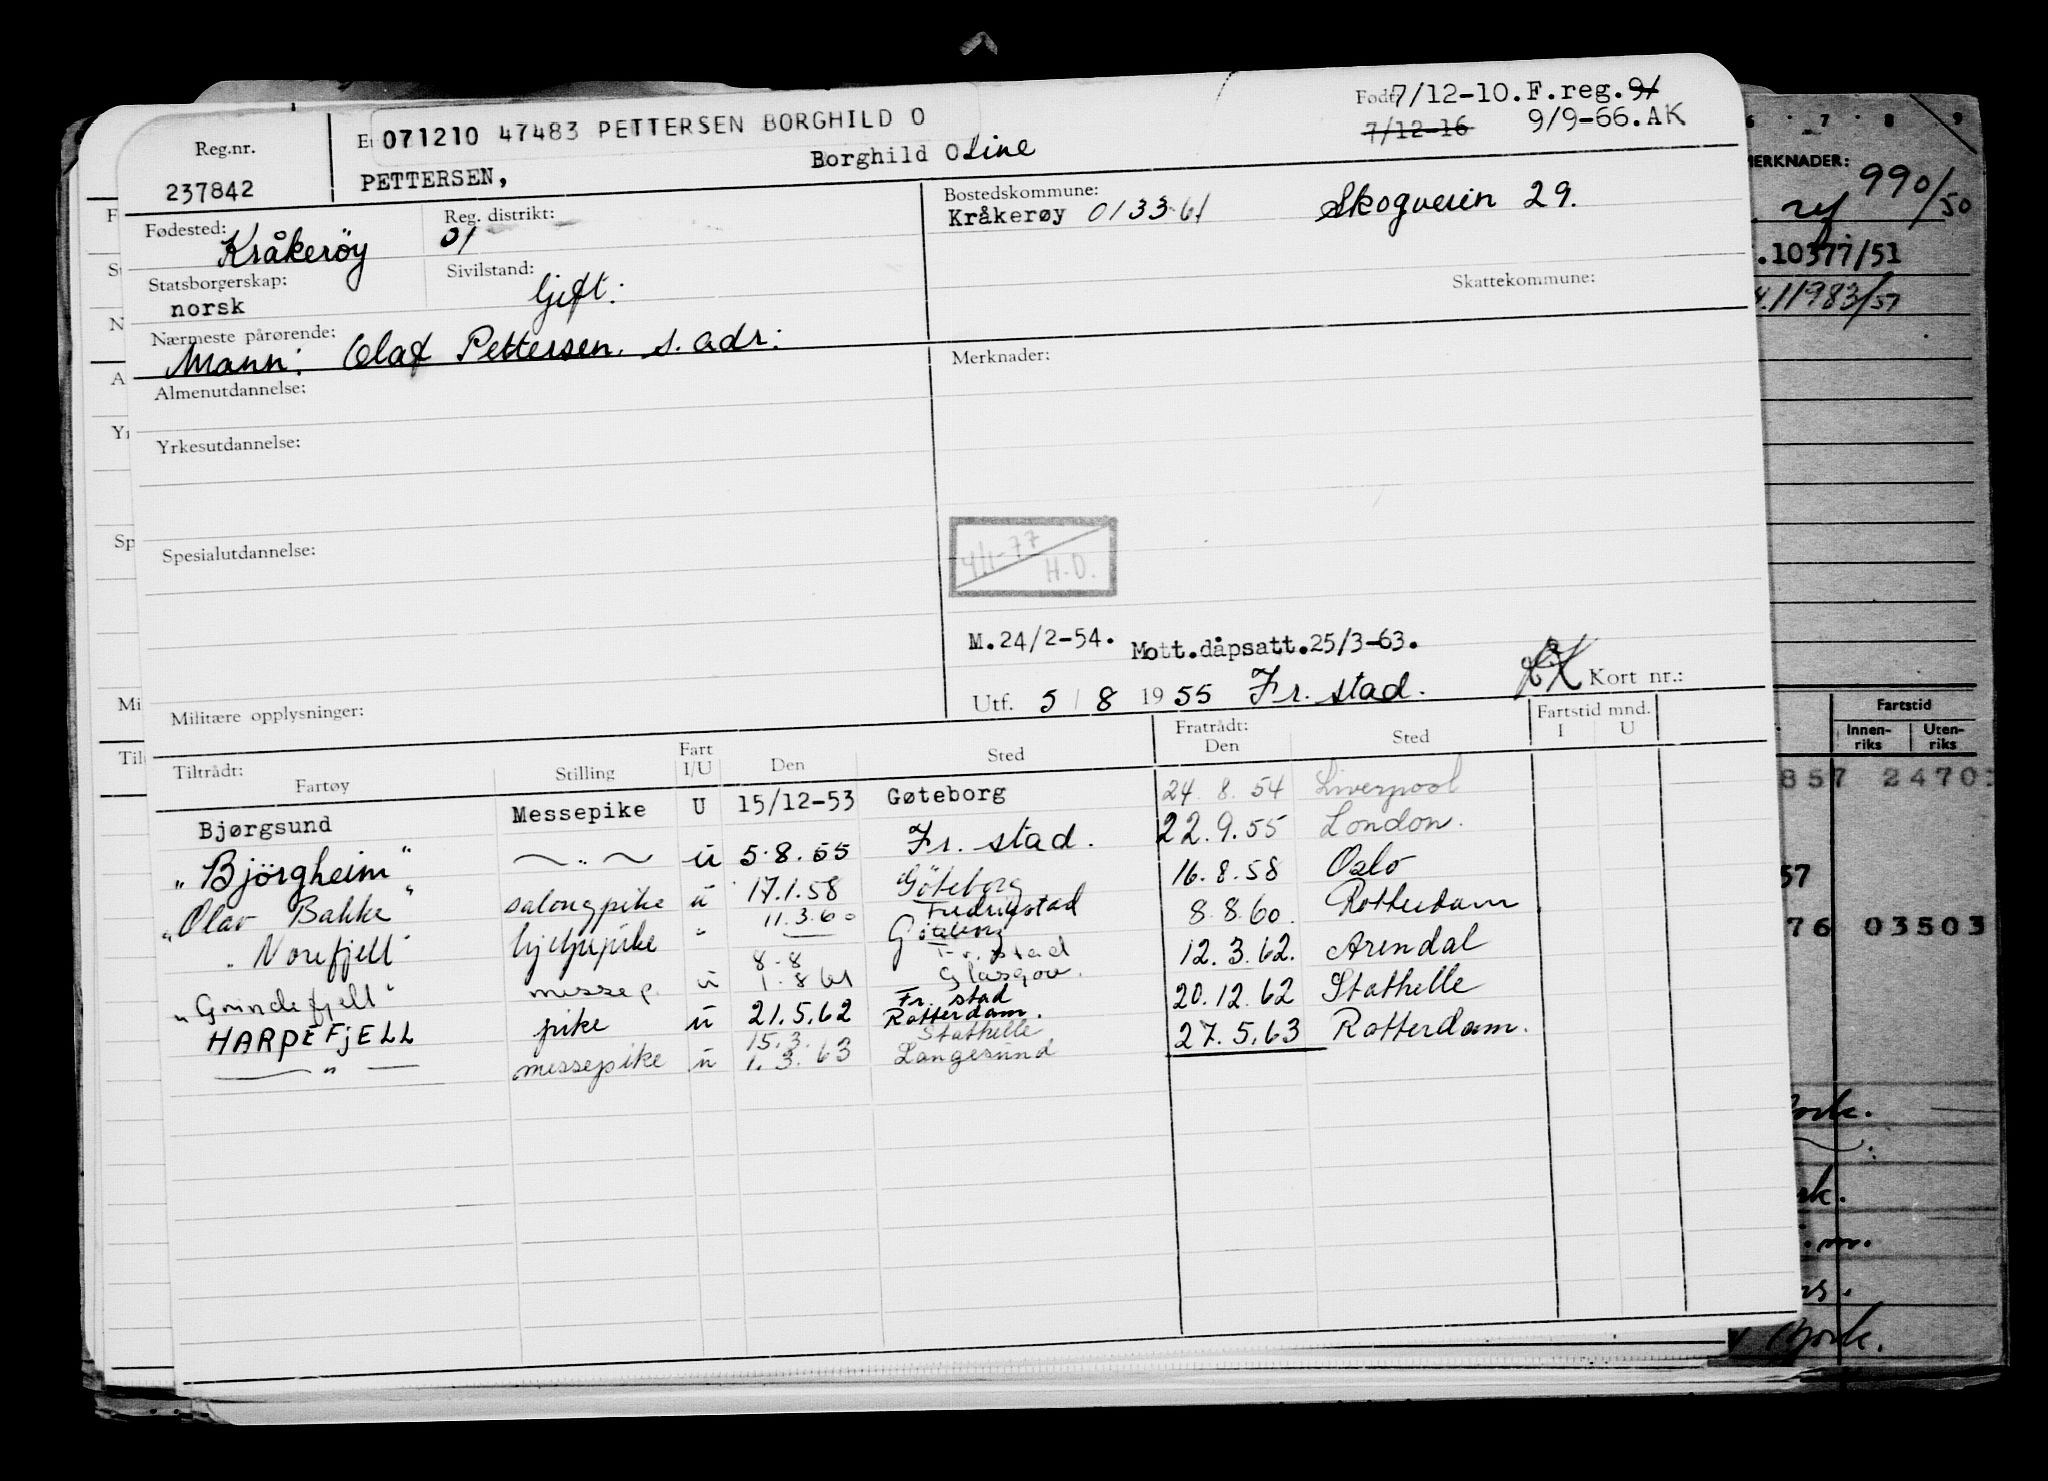 Reg.nr. 071210 47483 PETTERSEN BORGHILD O Født 7/12-10. F.reg. 91
7/12-16 9/9-66.AK
237842 PETTERSEN, Borghild Oline
Fødested: Kråkerøy Reg. distrikt: 01 Bostedskommune: Kråkerøy 0133 61 Skogveien 29.
Statsborgerskap: norsk Sivilstand: Gift. Skattekommune:
Nærmeste pårørende: Mann: Olaf Pettersen. s. adr:
Almenutdannelse: Merknader:
Yrkesutdannelse:
Spesialutdannelse: 4/1-77 H.O.
M.24/2-54. Mott.dåpsatt.25/3-63.
Militære opplysninger: Utf. 5/8 1955 Fr. stad. Kort nr.:
Tiltrådt: Fratrådt: Fartstid mnd.
Fartøy Stilling Fart I/U Den Sted Den Sted I U
Bjørgsund Messepike U 15/12-53 Gøteborg 24.8.54 Liverpool
"Björgheim" — " — u 5.8.55 Fr. stad. 22.9.55 London.
"Olav Bakke" salongpike u 17.1.58 Göteborg 16.8.58 Oslo
"Norefjell" hjelpepike " 11.3.60 Fredrikstad Göteborg 8.8.60. Rotterdam
"Grindefjell" messep. u 8-8 1.8 61 Fr. stad Glasgow. 12.3.62. Arendal
HARPEFjELL pike u 21.5.62 Fr. stad Rotterdam. 20.12.62 Stathelle
— " — messepike u 15.3. 1.3.63 Stathelle Langesund 27.5.63 Rotterdam.
6 7 8 9
MERKNADER:
990/50
.10377/51
11983/57
Fartstid
Innen-riks Uten-riks
857 2470
57
76 03503